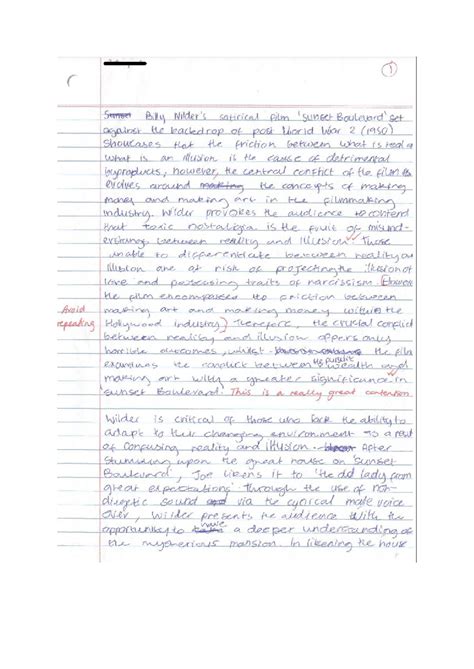 1
Billy Wilder's satirical film 'Sunset Boulevard' set
against the backdrop of post World War 2 (1950)
showcases that the friction between what is real &
what is an illusion is the cause of detrimental
byproducts, however, the central conflict of the film
evolves around the concepts of making
money and making art in the filmmaking
industry. Wilder provokes the audience to contend
that toxic nostalgia is the fruit of
between reality and illusion. Those
unable to differentiate between reality or
illusion are at risk of projecting the illusion of
love and possessing traits of narcissism.
the film encompasses friction between
Avoid
repeating
making art and making money within the
Hollywood industry. Therefore, the crucial conflict
between reality and illusion offers only
horrible outcomes, whilst the film
examines the conflict between the pursuit wealth
making art with a greater significance in
'Sunset Boulevard'. This is a really great contention.
Wilder is critical of those who lack the ability to
adapt to their changing environment as a result
of confusing reality and illusion. After
stumbling upon the great house on 'Sunset
Boulevard', Joe likens it to 'the old lady from
great expectations'. Through the use of non
diegetic sound via the cynical male voice
over, Wilder presents the audience with the
opportunity to have a deeper understanding of
the mysterious mansion. In likening the house